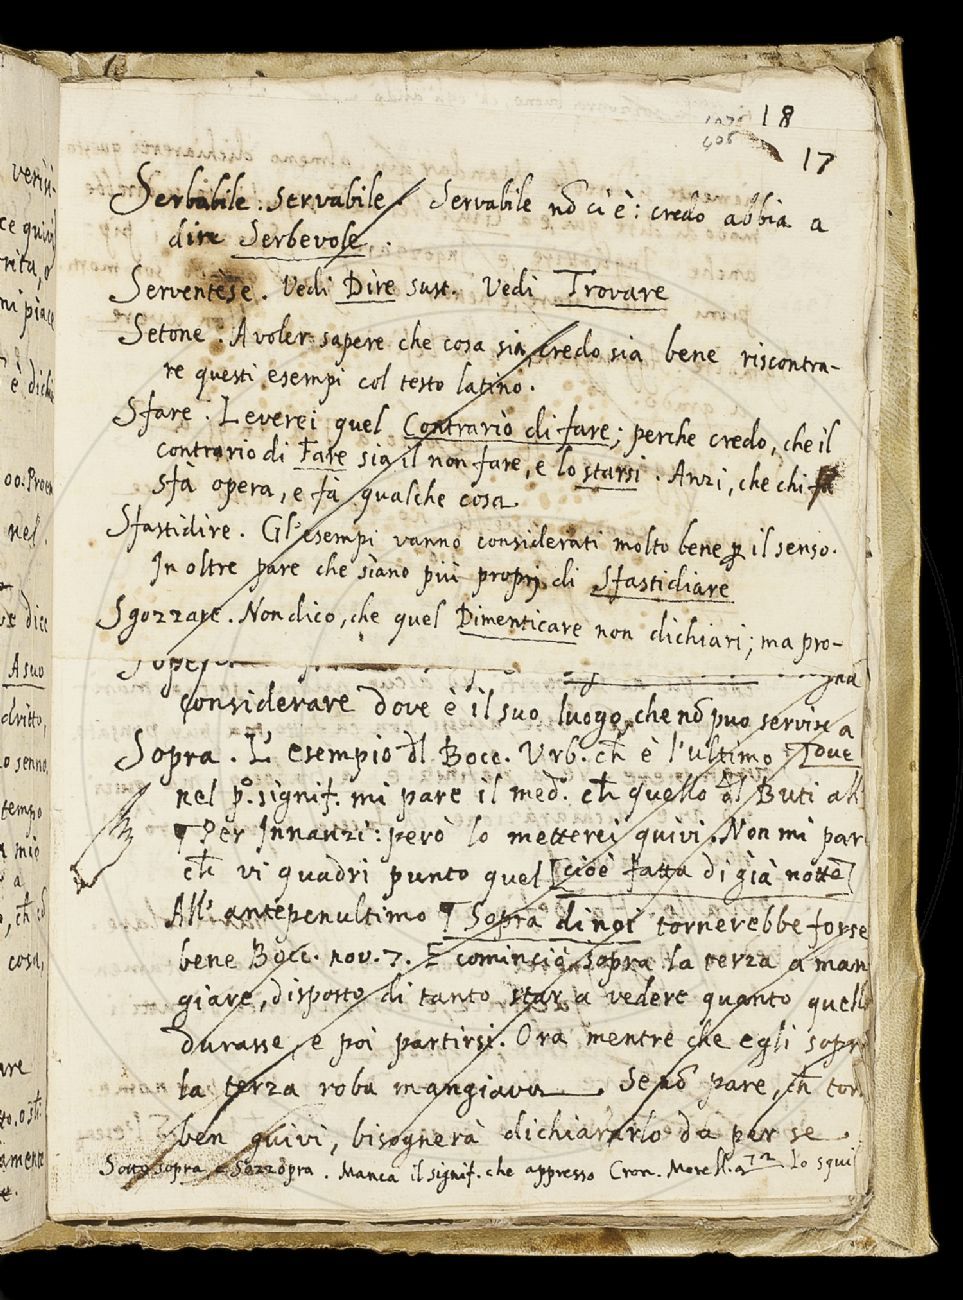 18
17
Serbabile. Servabile. Servabile nō ci è: credo abbia a
dire Serbevole.
Serventese. Vedi Dire sust. Vedi Trovare
Setone. A voler sapere che cosa sia, credo sia bene riscontra-
re questi esempi col testo latino.
Sfare. Leverei quel Contrario di fare; perche credo, che il
contrario di Fare sia il non fare, e lo starsi. Anzi, che chi
sfà opera, e fà qualche cosa
Sfastidire. Gl'esempi vanno considerati molto bene ꝑ il senso.
In oltre pare che siano più proprj di Sfastidiare
Sgozzare. Non dico, che quel Dimenticare non dichiari; ma pro-
considerare dove è il suo luogo, che nō può servire a
Sopra. L'esempio dl Bocc. Urb. ch̄ è l'ultimo due
nel p.º signif. mi pare il med.º ch̄ quello dl Buti al
¶ Per Innanzi: però lo metterei quivi. Non mi par
ch̄ vi quadri punto quel [cioè fatta di già notte]
All'antepenultimo ¶ Sopra di noi tornerebbe forse
bene Bocc. nov. 7. E cominciò sopra la terza a man
giare, disposto di tanto star a vedere quanto quell
durasse, e poi partirsi. Ora mentre che egli sopr
la terza roba mangiava. Se nō pare, ch̄ tor
ben quivi, bisognerà dichiararlo da per se.
Sotto sopra e Sozzopra. Manca il signif. che appresso Cron. Morell. a 72 Lo squi